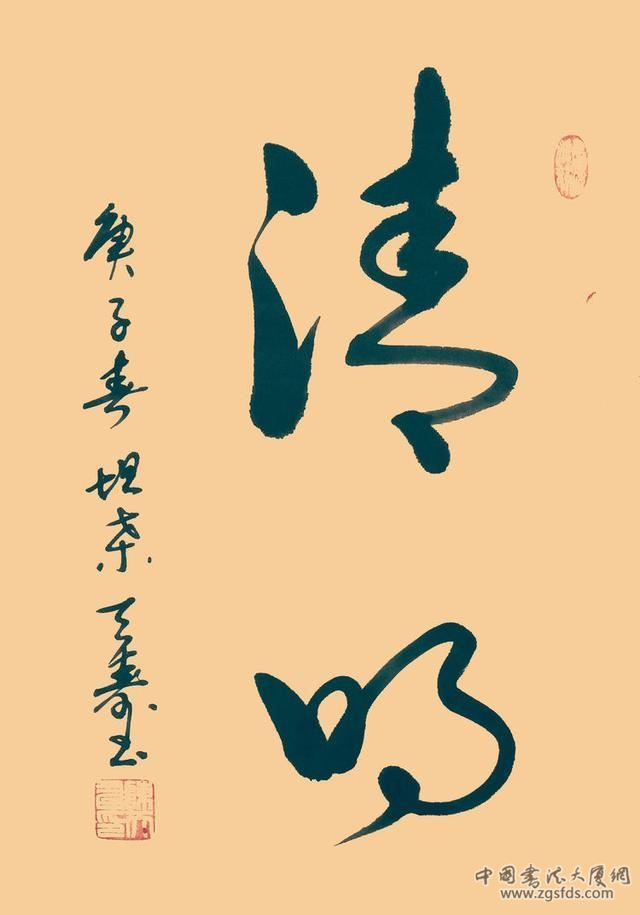 清明
庚子春坦桑天寿书
中国书法大厦網
www.zgsfds.com